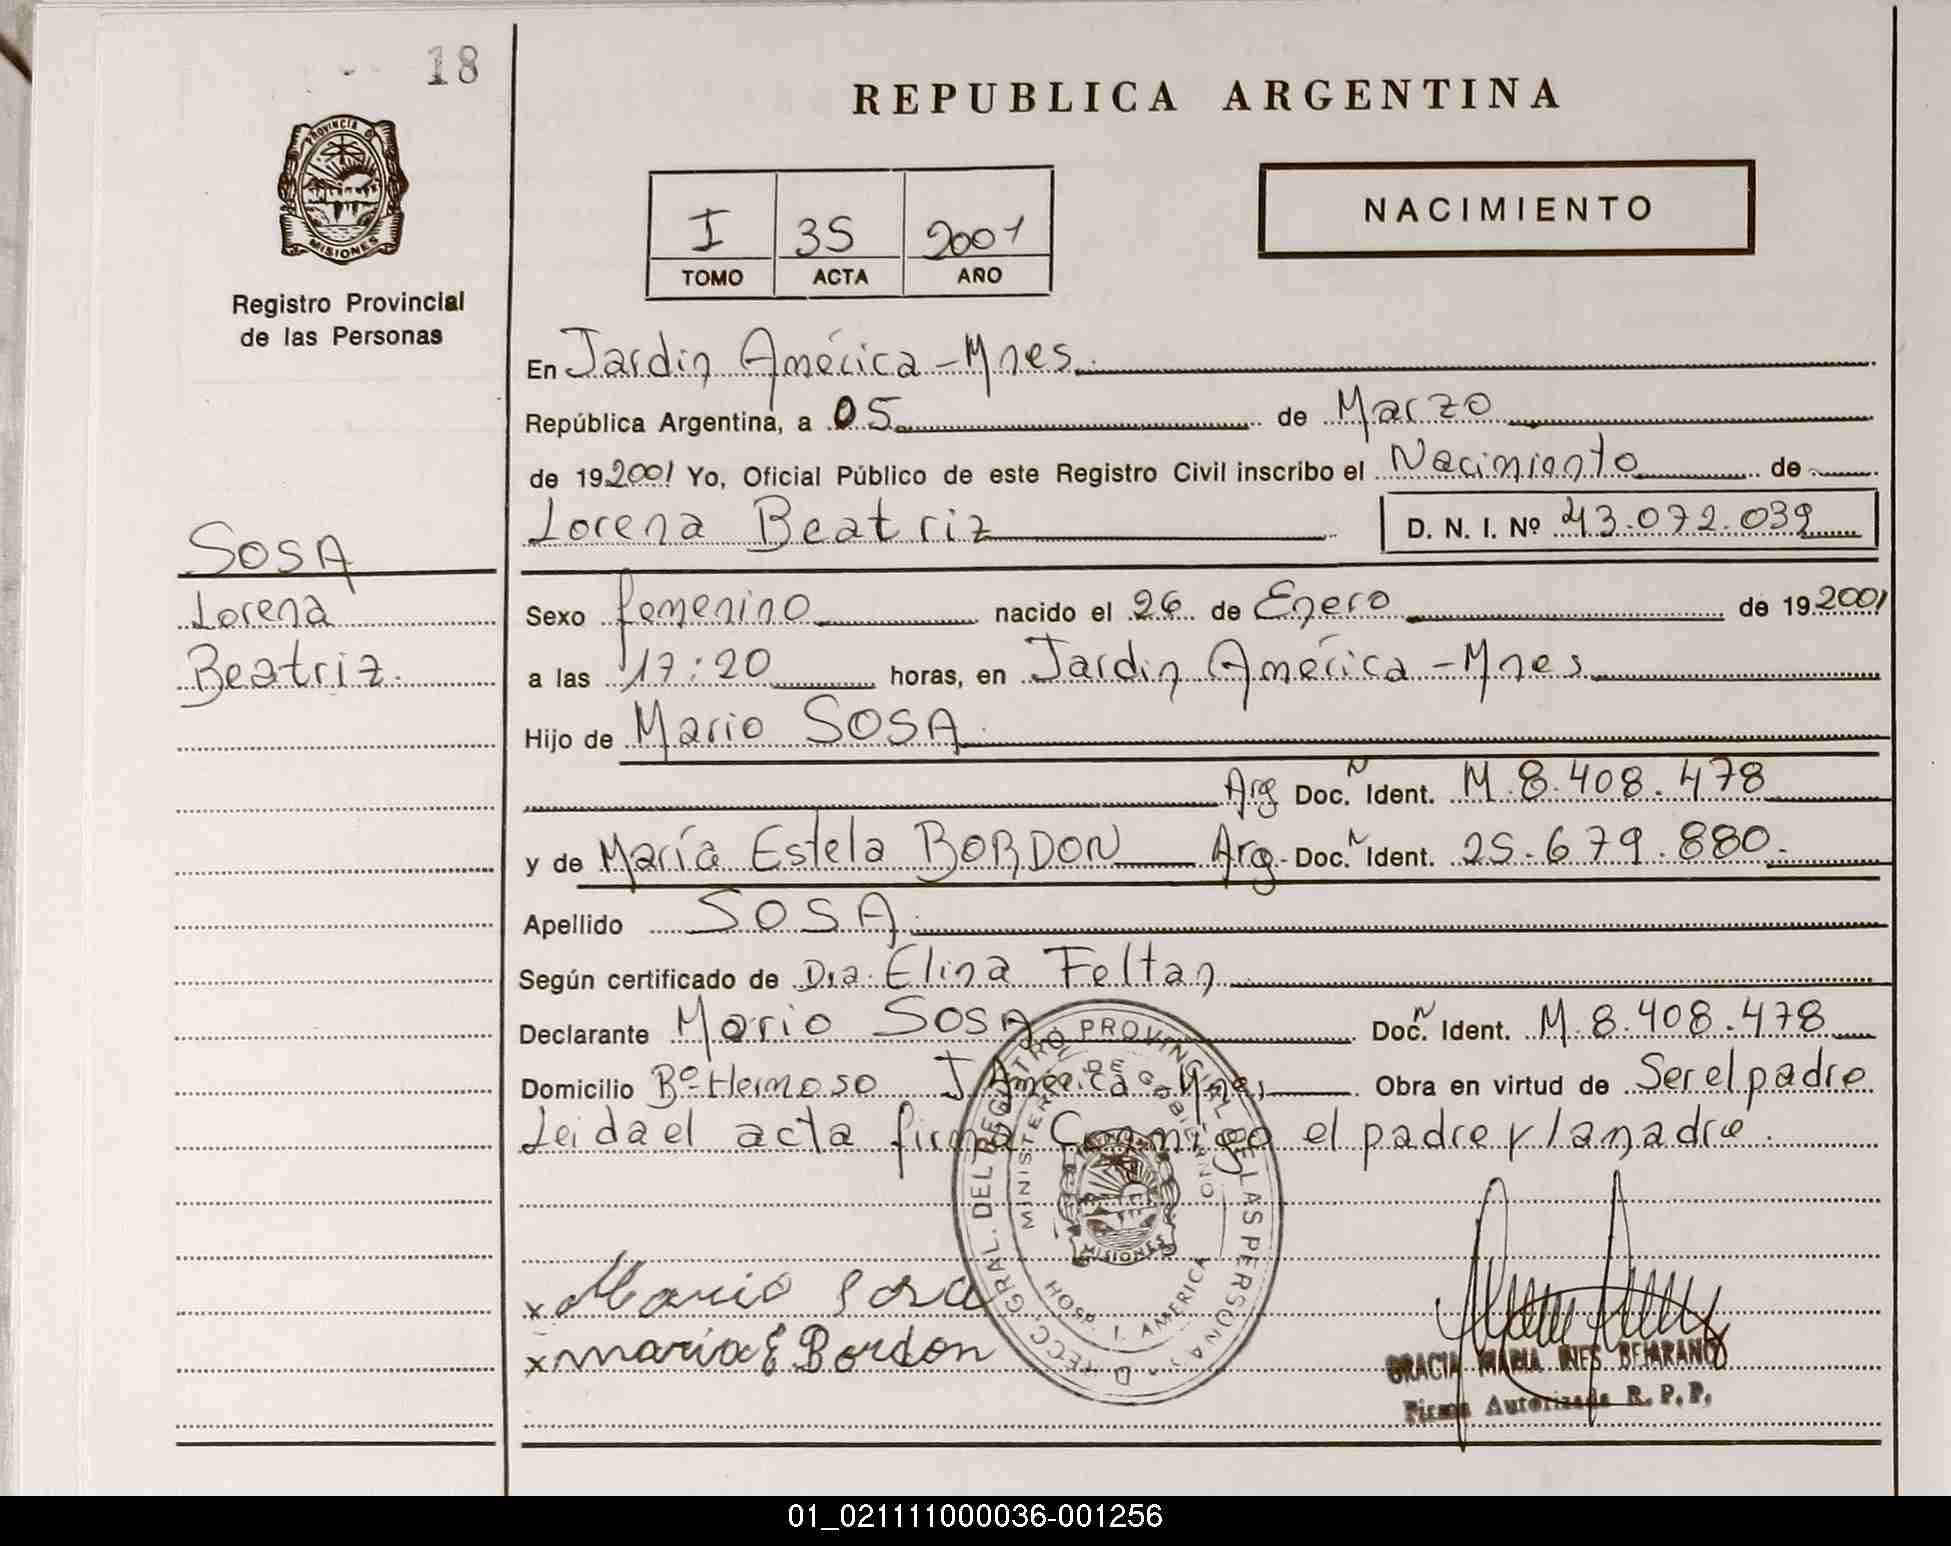 18
PROVINCIA D
MISIONES
Registro Provincial
de las Personas
REPUBLICA ARGENTINA
I 35 2001
TOMO ACTA AÑO
NACIMIENTO
En Jardin América - Mnes.
República Argentina, a 05 de Marzo
de 19 2001 Yo, Oficial Público de este Registro Civil inscribo el Nacimiento de
Lorena Beatriz D. N. I. Nº 43.072.039
SOSA
Lorena
Beatriz.
Sexo femenino nacido el 26 de Enero de 19 2001
a las 17:20 horas, en Jardin América - Mnes
Hijo de Mario SOSA.
Arg Doc. N Ident. M. 8.408.478
y de María Estela BORDON Arg. Doc. N Ident. 25.679.880.
Apellido SOSA.
Según certificado de Dra. Elina Feltan
Declarante Mario SOSA Doc. N Ident. M. 8.408.478
Domicilio Bº Hermoso J. América Mnes Obra en virtud de Ser el padre
Leida el acta firma Conmigo el padre y la madre.
x Mario Sosa
x maria E Bordon
REGISTRO PROVINCIAL DE LAS PERSONAS
MINISTERIO DE GOBIERNO
MISIONES
AMERICA
GRACIA MARIA INES BEJARANO
Firma Autorizada R. P. P.
01_021111000036-001256